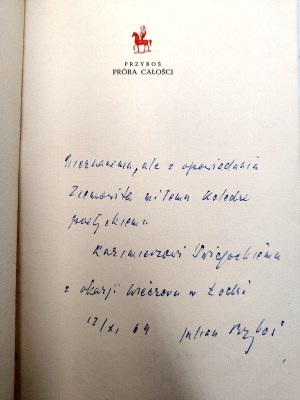 PRZYBOŚ
PRÓBA CAŁOŚCI
Nieznanemu, ale z opowiadania
Ziemowita miłemu Koledze
poetyckiemu
Kazimierzowi Świegockiemu
z okazji wieczoru w Łodzi
12/XI 64 Julian Przyboś